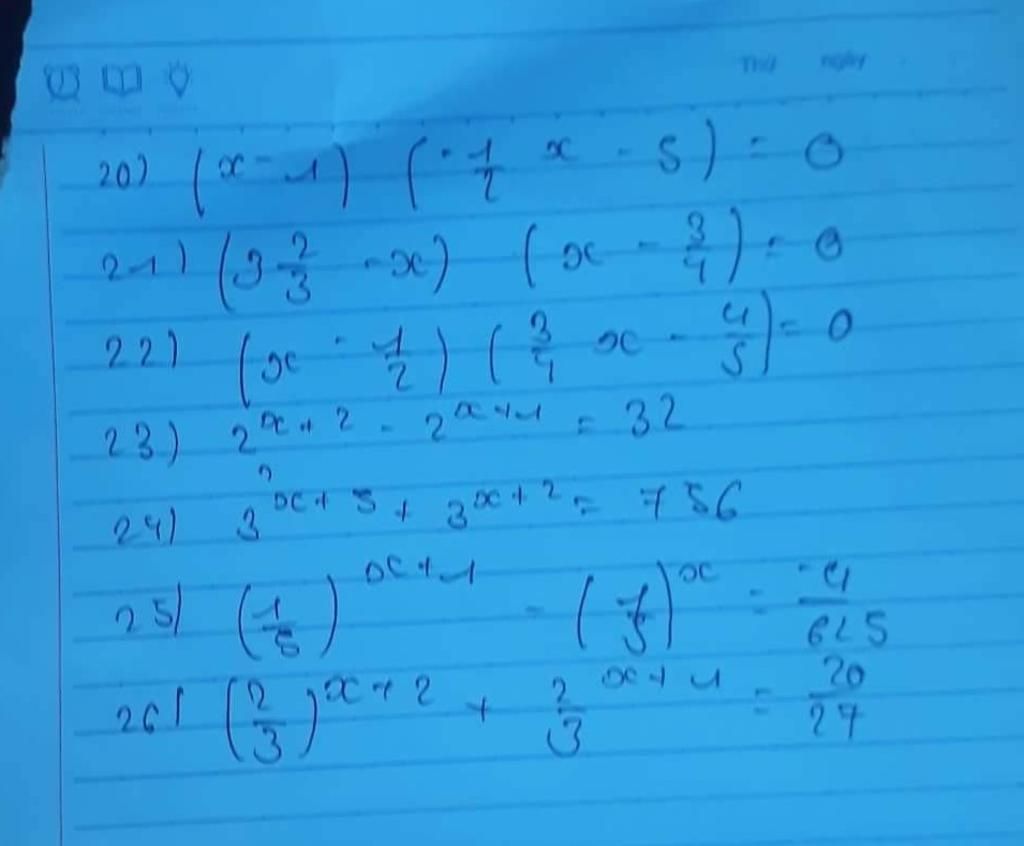 Thứ ngày
20) (x - 1) (-1/2 x - 5) = 0
21) (3 2/3 - x) (x - 3/4) = 0
22) (x - 1/2) (3/4 x - 4/5) = 0
23) 2^(x+2) - 2^(x+1) = 32
24) 3^(x+3) + 3^(x+2) = 756
25) (1/5)^(x+1) - (1/5)^x = -4/625
26) (2/3)^(x+2) + 2/3^(x+1) = 20/27